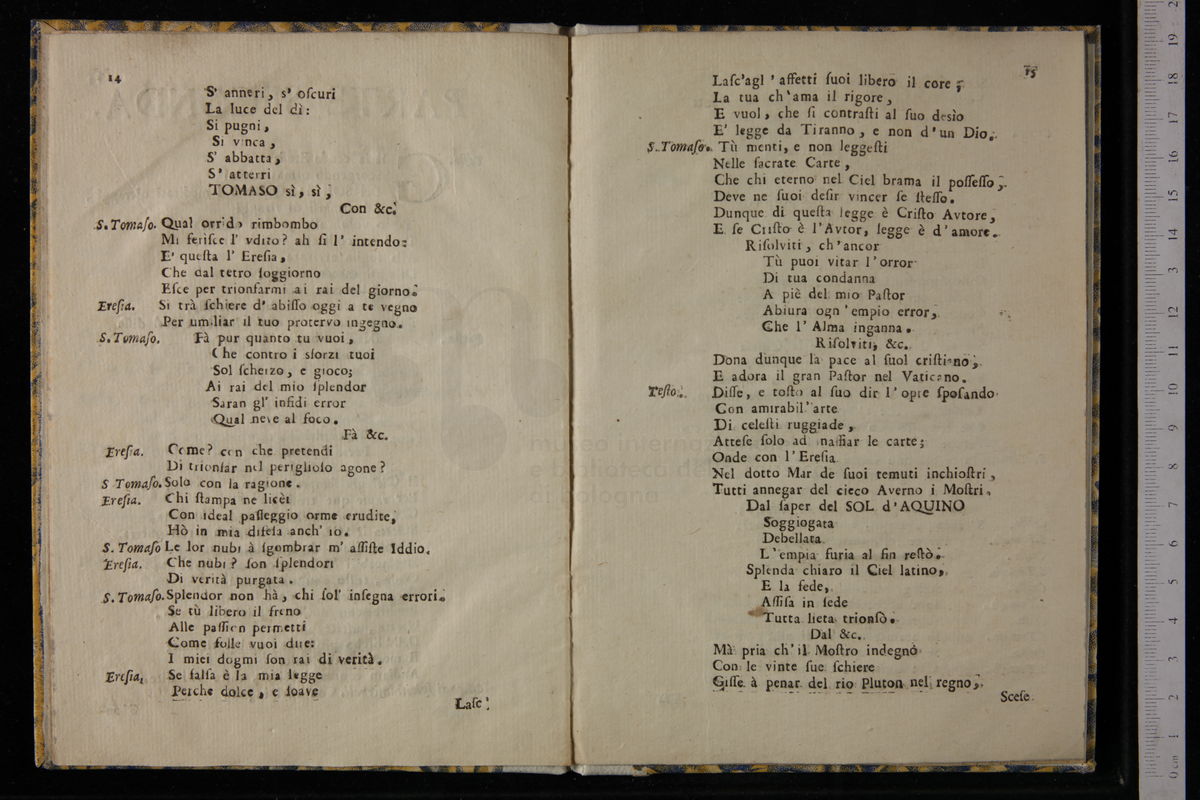 14
S' anneri, s' oſcuri
La luce del dì:
Si pugni,
Si vinca,
S' abbatta,
S' atterri
TOMASO sì, sì,
Con &c.
S. Tomaſo. Qual orrido rimbombo
Mi feriſce l' vdito? ah ſi l' intendo:
E' queſta l' Ereſia,
Che dal tetro ſoggiorno
Eſce per trionfarmi ai rai del giorno.
Ereſia. Si trà ſchiere d' abiſſo oggi a te vegno
Per umiliar il tuo protervo ingegno.
S. Tomaſo. Fà pur quanto tu vuoi,
Che contro i sforzi tuoi
Sol ſcherzo, e gioco;
Ai rai del mio ſplendor
Saran gl' infidi error
Qual neve al foco.
Fà &c.
Ereſia. Come? con che pretendi
Di trionfar nel periglioſo agone?
S Tomaſo. Solo con la ragione.
Ereſia. Chi ſtampa ne licei
Con ideal paſſeggio orme erudite,
Hò in mia difeſa anch' io.
S. Tomaſo Le lor nubi à ſgombrar m' aſſiſte Iddio.
Ereſia. Che nubi? ſon ſplendori
Di verità purgata.
S. Tomaſo. Splendor non hà, chi ſol' inſegna errori.
Se tù libero il freno
Alle paſſion permetti
Come folle vuoi dire:
I miei dogmi ſon rai di verità.
Ereſia, Se falſa è la mia legge
Perche dolce, e ſoave
Laſc'
15
Laſc'agl' affetti ſuoi libero il core;
La tua ch'ama il rigore,
E vuol, che ſi contraſti al ſuo desìo
E' legge da Tiranno, e non d'un Dio.
S. Tomaſo. Tù menti, e non leggeſti
Nelle ſacrate Carte,
Che chi eterno nel Ciel brama il poſſeſſo,
Deve ne ſuoi deſir vincer ſe ſteſſo.
Dunque di queſta legge è Criſto Avtore,
E ſe Criſto è l'Avtor, legge è d'amore.
Riſolviti, ch'ancor
Tù puoi vitar l'orror
Di tua condanna
A piè del mio Paſtor
Abiura ogn'empio error,
Che l' Alma inganna.
Riſolviti, &c.
Dona dunque la pace al ſuol criſtiano;
E adora il gran Paſtor nel Vaticano.
Teſto. Diſſe, e toſto al ſuo dir l'opre ſpoſando
Con amirabil'arte
Di celeſti ruggiade,
Atteſe ſolo ad inaffiar le carte;
Onde con l'Ereſia
Nel dotto Mar de ſuoi temuti inchioſtri,
Tutti annegar del cieco Averno i Moſtri.
Dal ſaper del SOL d'AQUINO
Soggiogata
Debellata
L'empia furia al fin reſtò.
Splenda chiaro il Ciel latino,
E la fede,
Aſſiſa in ſede
Tutta lieta trionfò.
Dal &c.
Mà pria ch'il Moſtro indegno
Con le vinte ſue ſchiere
Giſſe à penar del rio Pluton nel regno,
Sceſe